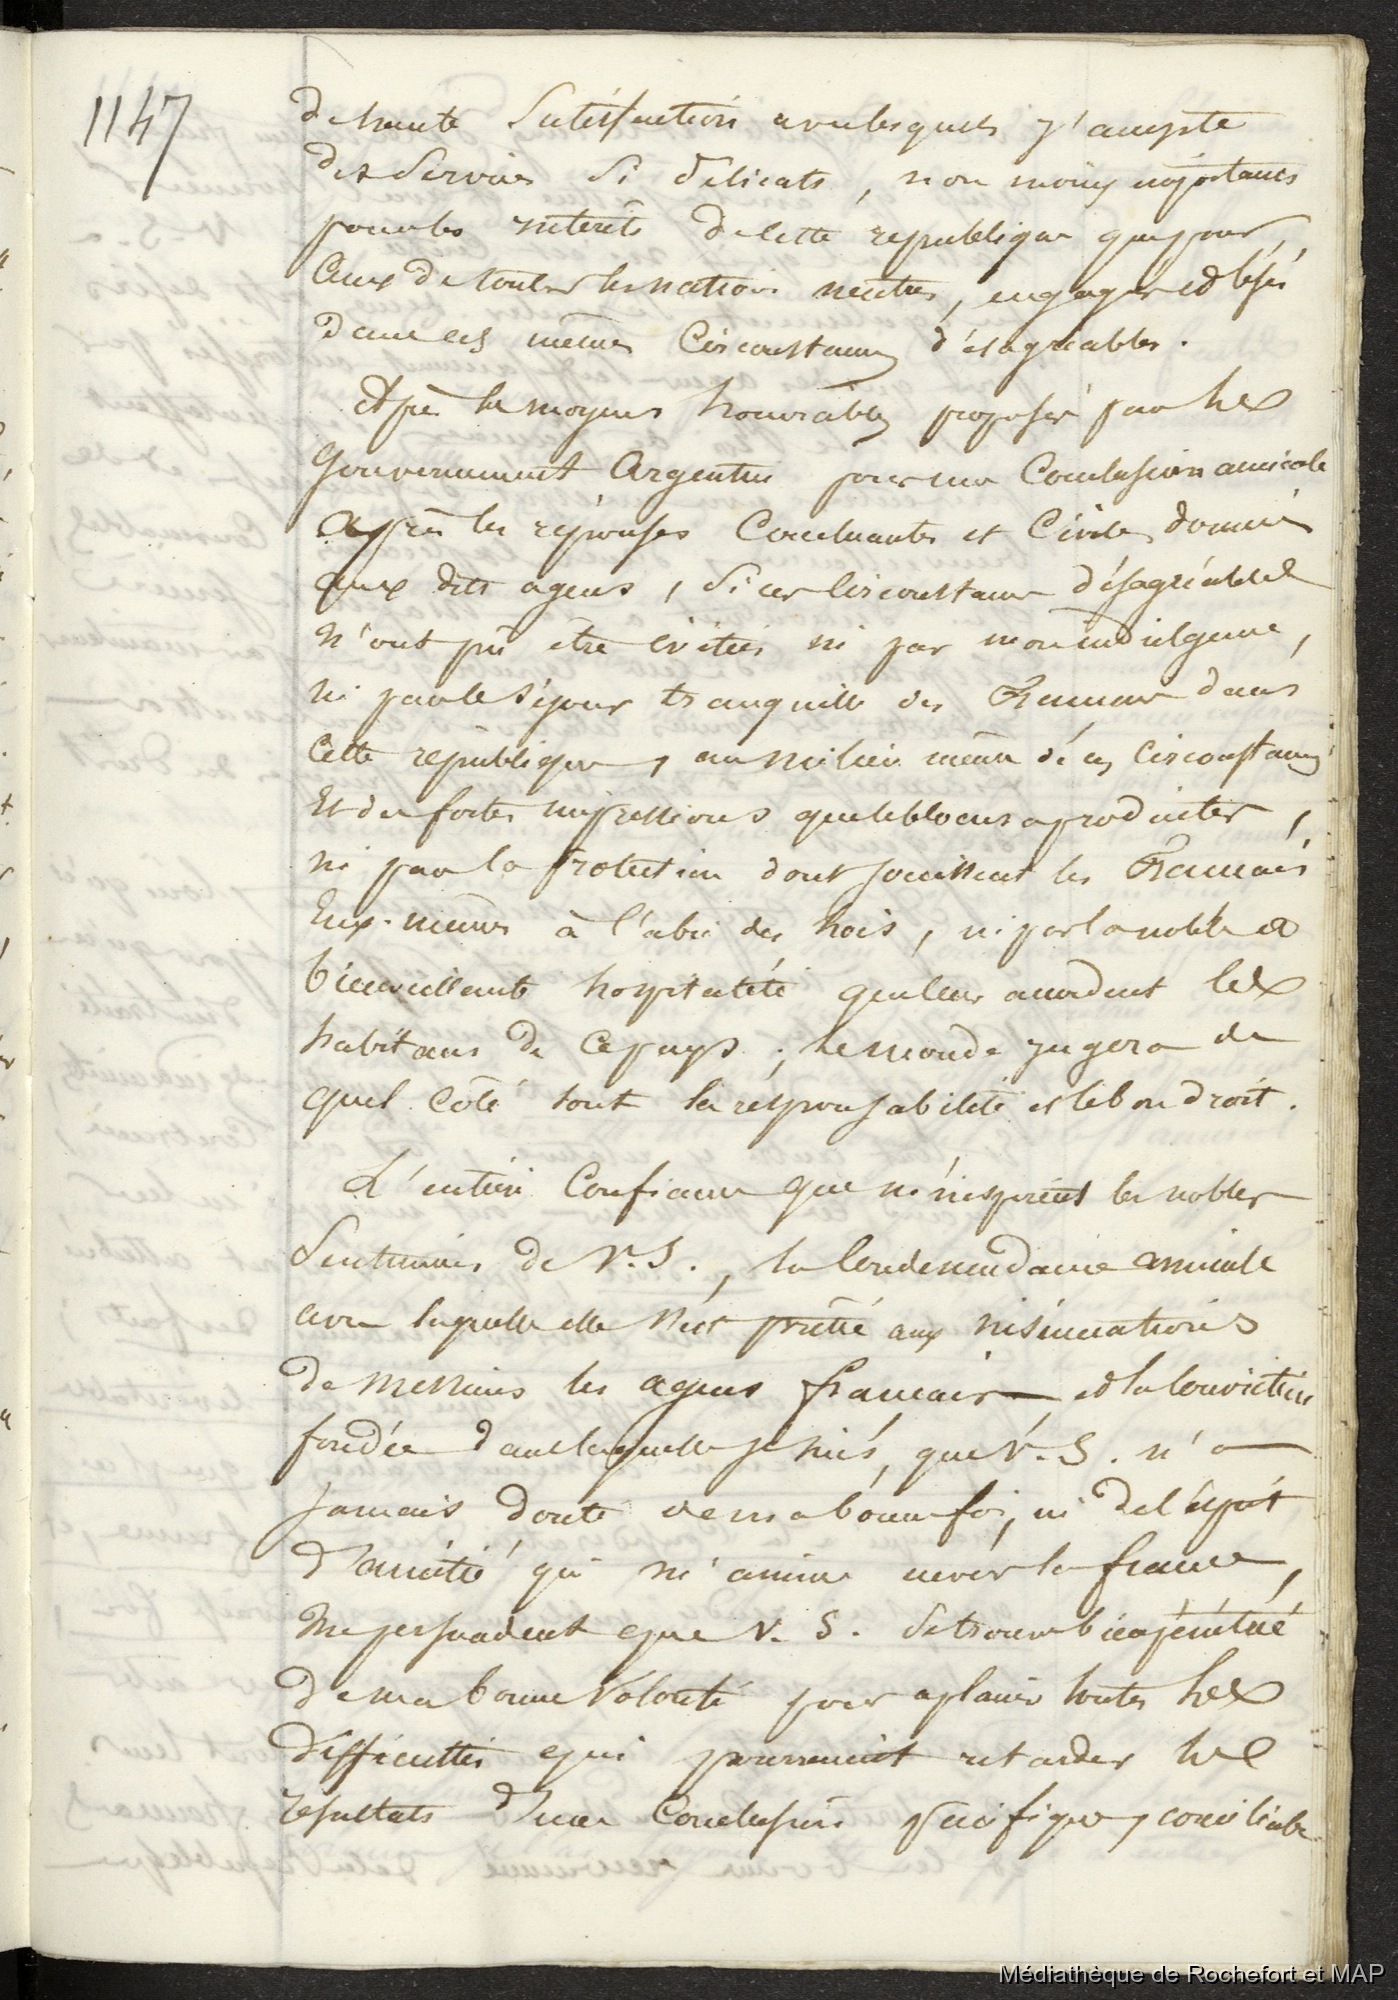 1147
de haute satisfaction avec lesquels j'accepte
des services si délicats, non moins importants
pour les intérêts de cette république que pour
ceux de toutes les nations neutres, engagées et lésés
dans ces mêmes circonstances désagréables.
Après les moyens honorables proposés par les
gouvernement Argentin pour une conclusion amicale
après les réponses concluantes et civiles données
aux dits agens, si ces circonstances désagréables
n'ont pû être évitées ni par mon indulgence,
ni par le séjour tranquille des Français dans
cette république, au milieu même de ces circonstances
Et des fortes impressions que le blocus a produites,
ni par la protection dont jouissent les Français
Eux-mêmes à l'abri des lois, ni par la noble et
bienveillante hospitalité que leur accordent les
habitans de ce pays; le monde jugera de
quel côté sont la responsabilité et le bon droit.
L'entière confiance que m'inspirent les nobles
sentimens de V.S., la condescendance amicale
avec laquelle elle s'est prêtée aux insinuations
de messieurs les agens français et la conviction
fondée dans laquelle je suis, que V.S. n'a
jamais douté de ma bonne foi, ni de l'esprit
d'amitié qui m'anime envers la france,
me persuadent que V.S. se trouve bien pénétré
de ma bonne volonté pour aplanir toutes les
difficultés qui pourraient retarder les
résultats d'une conclusion pacifique, conciliable
Médiathèque de Rochefort et MAP